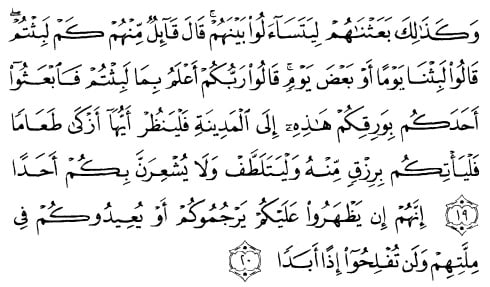 وَكَذَٰلِكَ بَعَثۡنَٰهُمۡ لِيَتَسَآءَلُواْ بَيۡنَهُمۡۚ قَالَ قَآئِلٞ مِّنۡهُمۡ كَمۡ لَبِثۡتُمۡۖ
قَالُواْ لَبِثۡنَا يَوۡمًا أَوۡ بَعۡضَ يَوۡمٖۚ قَالُواْ رَبُّكُمۡ أَعۡلَمُ بِمَا لَبِثۡتُمۡ فَٱبۡعَثُوٓاْ
أَحَدَكُم بِوَرِقِكُمۡ هَٰذِهِۦٓ إِلَى ٱلۡمَدِينَةِ فَلۡيَنظُرۡ أَيُّهَآ أَزۡكَىٰ طَعَامٗا
فَلۡيَأۡتِكُم بِرِزۡقٖ مِّنۡهُ وَلۡيَتَلَطَّفۡ وَلَا يُشۡعِرَنَّ بِكُمۡ أَحَدًا
١٩ إِنَّهُمۡ إِن يَظۡهَرُواْ عَلَيۡكُمۡ يَرۡجُمُوكُمۡ أَوۡ يُعِيدُوكُمۡ فِي
مِلَّتِهِمۡ وَلَن تُفۡلِحُوٓاْ إِذًا أَبَدٗا ٢٠